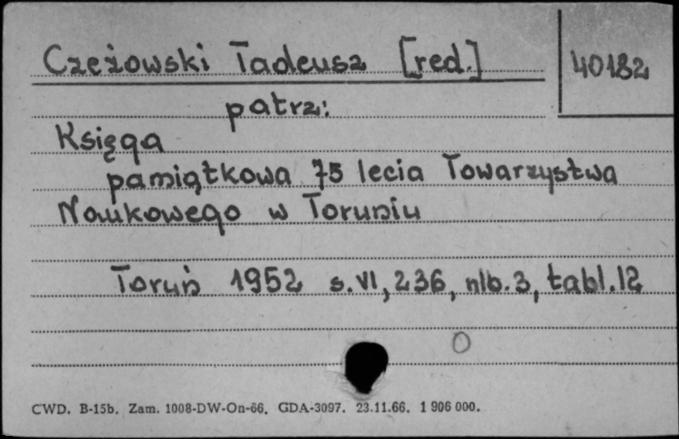 Czeżowski Tadeusz [red.]
40182
patrz:
Księga
pamiątkowa 75 lecia Towarzystwa
Naukowego w Toruniu
Toruń 1952 s. VI, 236, nlb. 3, tabl. 12
CWD. B-15b. Zam. 1008-DW-On-66. GDA-3097. 23.11.66. 1 906 000.